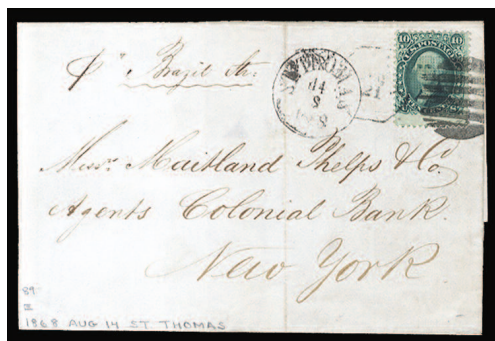 10 U.S. POSTAGE 10
pr Brazil Str.
ST THOMAS
14
8
1868
Messrs. Maitland Phelps & Co.
Agents Colonial Bank.
New York
89
1868 AUG 14 ST. THOMAS